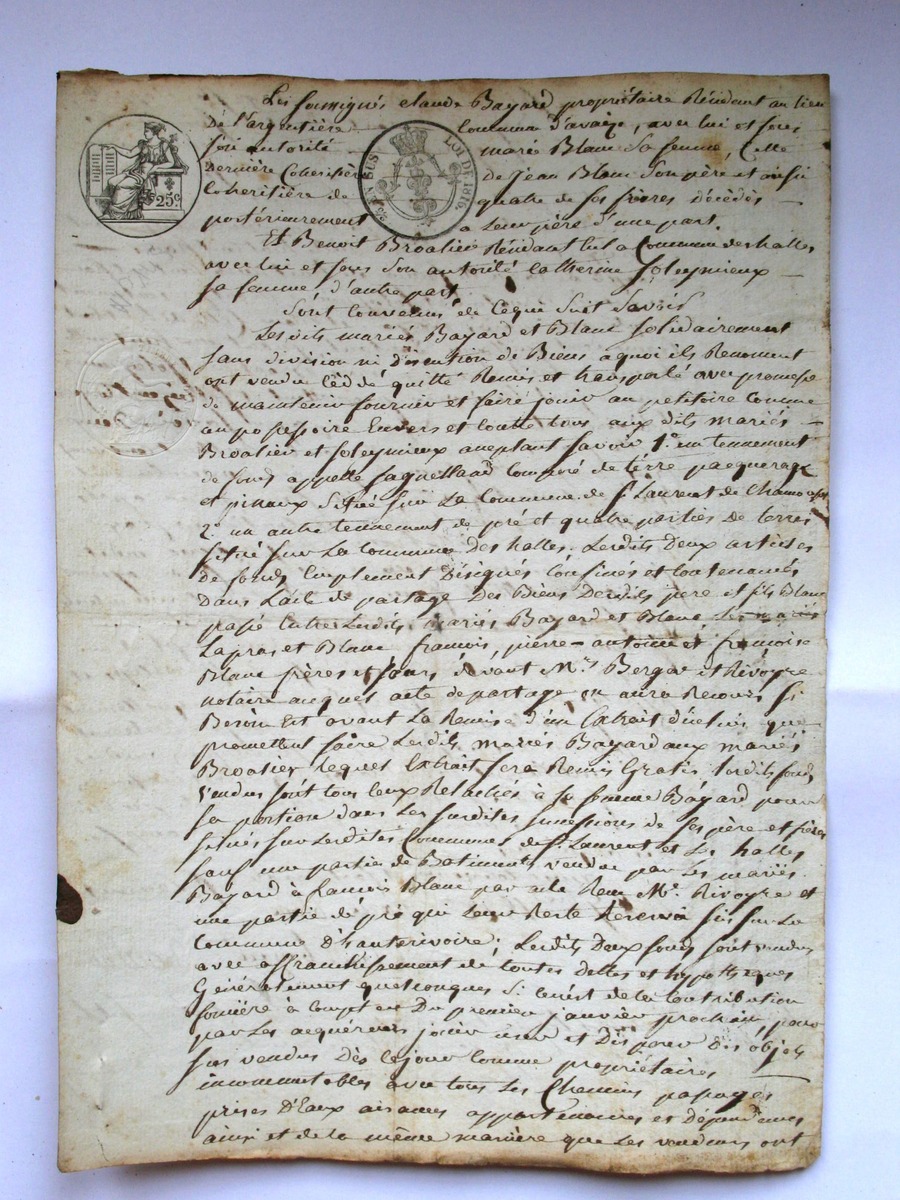 Les soussignés claude Bayard propriétaire Résidant au lieu
De l'argentière commune d'avaize, avec lui et sous
son autorité marie Blanc sa femme, Cette
Dernière Coheritière de Jean Blanc son père et aussi
Coheritière de quatre de ses frères Décédés
postérieurement a Leur père d'une part.
25c
EN SUS
LOI DE 1816.
Et Benoit Broalier Résidant en la Commune des halles
avec lui et sous son autorité Catherine Soleymieux
sa femme d'autre part
Sont Convenus de Cequi Suit Savoir
Lesdits mariés Bayard et Blanc solidairement
sans division ni discution de Biens aquoi ils Renoncent
ont vendu cèddé quitté Remis et transporté avec promesse
de maintenir fournir et faire jouir au petitoire Comme
au possessoire Envers et Contre tous aux dits mariés
Broalier et Soleymieux acceptant savoir 1.º un tennement
de fonds appellé Composé de terre pacquerage
et pinaux Situé sur La Commune de St Laurent de Chamousset
2.º un autre tennement de pré et quatre parties de terres
situé sur La Commune des halles. Lesdits Deux articles
de fonds Emplement Désignés Confinés et Contenancés
Dans L'acte de partage Des Biens Desdits père et fils Blanc
passé Entre Lesdits mariés Bayard et Blanc
Lapras et Blanc, francois, pierre-antoine et françoise
Blanc frères et sœurs devant Mrs Berger et Rivoyre
notaire auquel acte de partage on aura Recours si
Besoin Est avant La Remise d'un Extrait d'icelui que
promettent faire Lesdits mariés Bayard aux mariés
Broalier lequel Extrait sera Remis Gratis Lesdits fonds
Vendus sont tous Ceux Relachés à la femme Bayard pour
sa portion dans Les susdites successions de ses père et frères
situés sur Lesdites Communes de St Laurent et Les halles
sauf une partie de Batiments vendue par Les mariés
Bayard à francois Blanc par acte Reçu Me Rivoyre et
une partie de pré qui Leur Reste sur La
Commune D'hauterivoire; Lesdits Deux fonds sont vendus
avec affranchissement de toutes dettes et hypothèques
Généralement quelconques Si cenést de la Contribution
foncière à Compter Du premier janvier prochain, pour
par Les acquéreurs jouir user et Disposer Des objets
sus vendus Dès Cejour Comme propriétaires
incommutables avec tous Les Chemins passages
prises D'Eaux aisances appartenances et Dépendances
ainsi et de la même manière que Les vendeurs ont